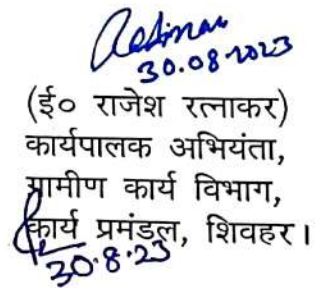 30.08.2023
(ई० राजेश रत्नाकर)
कार्यपालक अभियंता,
ग्रामीण कार्य विभाग,
कार्य प्रमंडल, शिवहर।
30.8.23